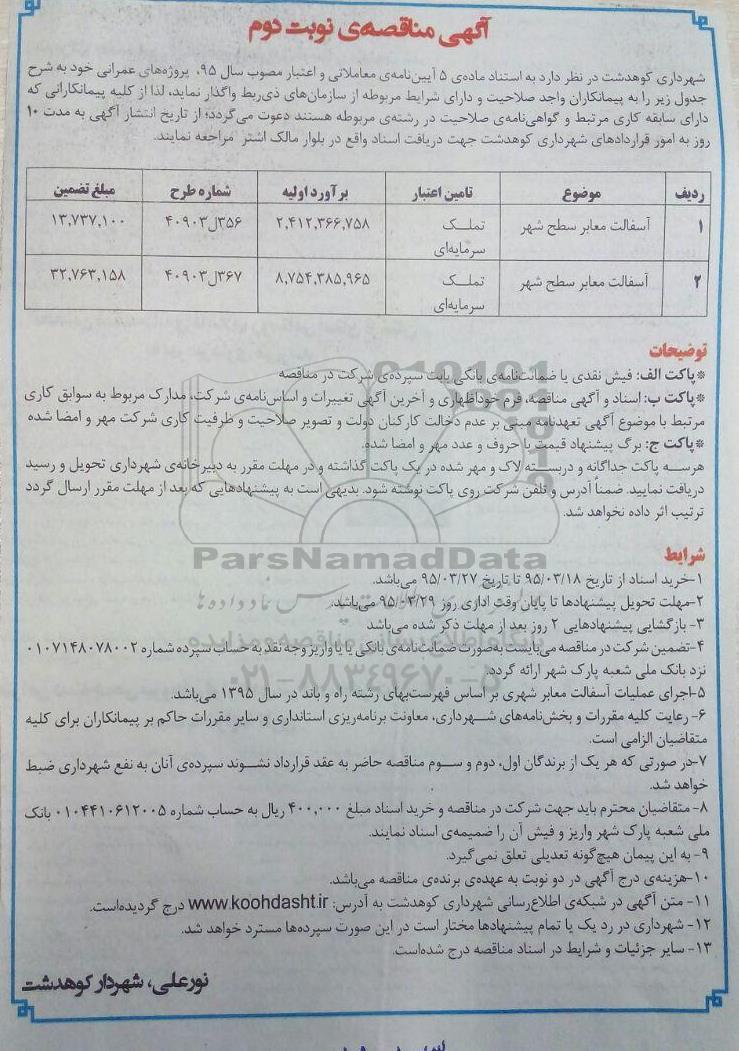 آگهی مناقصه‌ی نوبت دوم
شهرداری کوهدشت در نظر دارد به استناد ماده‌ی ۵ آیین‌نامه‌ی معاملاتی و اعتبار مصوب سال ۹۵، پروژه‌های عمرانی خود به شرح
جدول زیر را به پیمانکاران واجد صلاحیت و دارای شرایط مربوطه از سازمان‌های ذی‌ربط واگذار نماید، لذا از کلیه پیمانکارانی که
دارای سابقه کاری مرتبط و گواهی‌نامه‌ی صلاحیت در رشته‌ی مربوطه هستند دعوت می‌گردد؛ از تاریخ انتشار آگهی به مدت ۱۰
روز به امور قراردادهای شهرداری کوهدشت جهت دریافت اسناد واقع در بلوار مالک اشتر مراجعه نمایند.
ردیف موضوع تامین اعتبار برآورد اولیه شماره طرح مبلغ تضمین
۱ آسفالت معابر سطح شهر تملک ۲,۴۱۲,۳۶۶,۷۵۸ ۳۵۶ل۴۰۹۰۳ ۱۳,۷۳۷,۱۰۰
سرمایه‌ای
۲ آسفالت معابر سطح شهر تملک ۸,۷۵۴,۳۸۵,۹۶۵ ۳۶۷ل۴۰۹۰۳ ۳۲,۷۶۳,۱۵۸
سرمایه‌ای
توضیحات
*پاکت الف: فیش نقدی یا ضمانت‌نامه‌ی بانکی بابت سپرده‌ی شرکت در مناقصه
*پاکت ب: اسناد و آگهی مناقصه، فرم خوداظهاری و آخرین آگهی تغییرات و اساس‌نامه‌ی شرکت، مدارک مربوط به سوابق کاری
مرتبط با موضوع آگهی تعهدنامه مبنی بر عدم دخالت کارکنان دولت و تصویر صلاحیت و ظرفیت کاری شرکت مهر و امضا شده
*پاکت ج: برگ پیشنهاد قیمت با حروف و عدد مهر و امضا شده.
هرسه پاکت جداگانه و دربسته لاک و مهر شده در یک پاکت گذاشته و در مهلت مقرر به دبیرخانه‌ی شهرداری تحویل و رسید
دریافت نمایید. ضمناً آدرس و تلفن شرکت روی پاکت نوشته شود. بدیهی است به پیشنهادهایی که بعد از مهلت مقرر ارسال گردد
ترتیب اثر داده نخواهد شد.
ParsNamadData
شرایط
۱-خرید اسناد از تاریخ ۹۵/۰۳/۱۸ تا تاریخ ۹۵/۰۳/۲۷ می‌باشد.
۲-مهلت تحویل پیشنهادها تا پایان وقت اداری روز ۹۵/۰۳/۲۹ می‌باشد.
۳- بازگشایی پیشنهادهایی ۲ روز بعد از مهلت ذکر شده می‌باشد
۴-تضمین شرکت در مناقصه می‌بایست به‌صورت ضمانت‌نامه‌ی بانکی یا یا واریز وجه نقد به حساب سپرده شماره ۰۱۰۷۱۴۸۰۷۸۰۰۲
نزد بانک ملی شعبه پارک شهر ارائه گردد.
۰۲۱-۸۸۳۴۹۶۷۰-۵
۵-اجرای عملیات آسفالت معابر شهری بر اساس فهرست‌بهای رشته راه و باند در سال ۱۳۹۵ می‌باشد.
۶- رعایت کلیه مقررات و بخش‌نامه‌های شهرداری، معاونت برنامه‌ریزی استانداری و سایر مقررات حاکم بر پیمانکاران برای کلیه
متقاضیان الزامی است.
۷-در صورتی که هر یک از برندگان اول، دوم و سوم مناقصه حاضر به عقد قرارداد نشوند سپرده‌ی آنان به نفع شهرداری ضبط
خواهد شد.
۸- متقاضیان محترم باید جهت شرکت در مناقصه و خرید اسناد مبلغ ۴۰۰,۰۰۰ ریال به حساب شماره ۰۱۰۴۴۱۰۶۱۲۰۰۵ بانک
ملی شعبه پارک شهر واریز و فیش آن را ضمیمه‌ی اسناد نمایند.
۹- به این پیمان هیچ‌گونه تعدیلی تعلق نمی‌گیرد.
۱۰-هزینه‌ی درج آگهی در دو نوبت به عهده‌ی برنده‌ی مناقصه می‌باشد.
۱۱- متن آگهی در شبکه‌ی اطلاع‌رسانی شهرداری کوهدشت به آدرس: www.koohdasht.ir درج گردیده‌است.
۱۲- شهرداری در رد یک یا تمام پیشنهادها مختار است در این صورت سپرده‌ها مسترد خواهد شد.
۱۳- سایر جزئیات و شرایط در اسناد مناقصه درج شده‌است.
نورعلی، شهردار کوهدشت